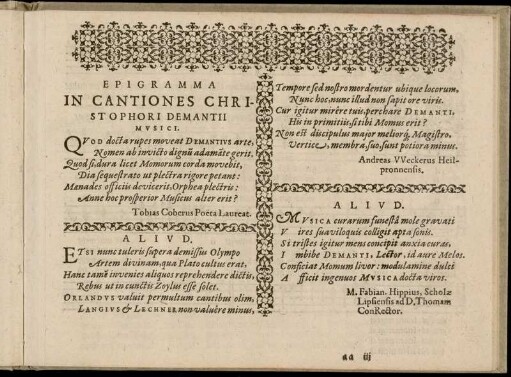 EPIGRAMMA
IN CANTIONES CHRI-
STOPHORI DEMANTII
MVSICI.
QVOD docta rupes moveat DEMANTIVS arte,
Nomen ab invicto dignū adamāte gerit.
Quod si dura licet Momorum corda movebit,
Dia sequestrato ut plectra rigore petant:
Mænades officii devicerit Orphea plectris:
Anne hoc prosperior Musicus alter erit?
Tobias Coberus Poëta Laureat.
ALIVD.
ETSI nunc tuleris supera demissus Olympo
Artem divinam, qua Plato cultus erat.
Hanc tamē invenies aliquos reprehendere dictis,
Rebus ut in cunctis Zoylus esse solet.
ORLANDVS valuit permultum cantibus olim,
LANGIVS & LECHNER non valuêre minus,
Tempore sed nostro mordentur ubique locorum,
Nunc hoc, nunc illud non sapit ore viris.
Cur igitur mirêre tuis, perchare DEMANTI,
Hîc in primitiis si tibi Momus erit?
Non est discipulus major meliorq́; Magistro,
Vertice, membra, suo, sunt potiora minus.
Andreas VVeckerus Heil-
pronnensis.
ALIVD.
MVSICA curarum funestâ mole gravati
V ires suaviloquis colligit apta sonis.
Si tristes igitur mens concipit anxia curas,
I mbibe DEMANTI, Lector, id aure Melos.
Conficiat Momum livor: modulamine dulci
A fficit ingenuos MVSICA docta viros.
M. Fabian. Hippius, Scholæ
Lipsensis ad D. Thomam
ConRector.
aa iij